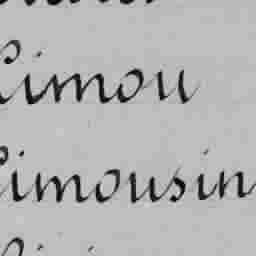 Limou
Limousin